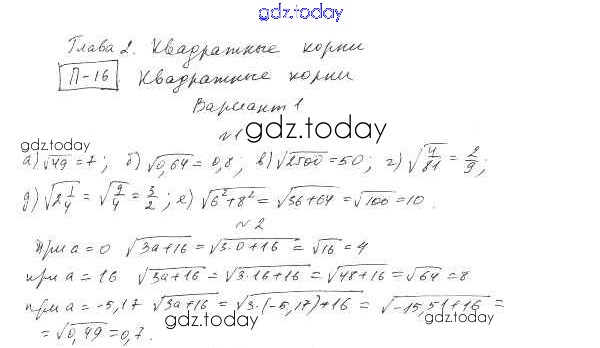 gdz.today
Глава 2. Квадратные корни
П-16 Квадратные корни
Вариант 1
№1 gdz.today
gdz.today
а) √49 = 7; б) √0,64 = 0,8; в) √2500 = 50; г) √4/81 = 2/9;
д) √2 1/4 = √9/4 = 3/2; е) √6²+8² = √36+64 = √100 = 10.
№2
При а = 0 √3а+16 = √3·0+16 = √16 = 4
при а = 16 √3а+16 = √3·16+16 = √48+16 = √64 = 8
при а = -5,17 √3а+16 = √3·(-5,17)+16 = √-15,51+16 =
= √0,49 = 0,7.
gdz.today
gdz.today